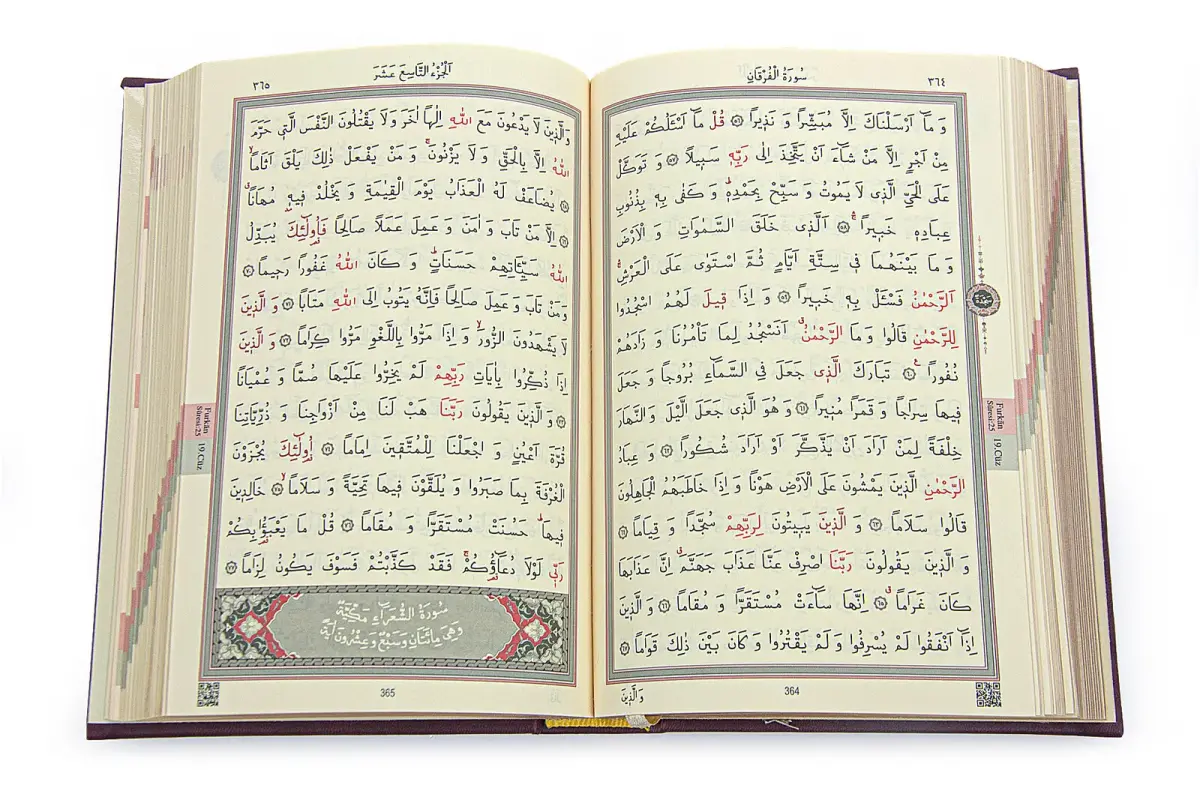 ٣٦٤
سُورَةُ الْفُرْقَانِ
وَمَٓا اَرْسَلْنَاكَ اِلَّا مُبَشِّرًا وَ نَذِيرًا ﴿٥٦﴾ قُلْ مَٓا اَسْئَلُكُمْ عَلَيْهِ
مِنْ اَجْرٍ اِلَّا مَنْ شَٓاءَ اَنْ يَتَّخِذَ اِلٰى رَبِّهِ سَبِيلًا ﴿٥٧﴾ وَ تَوَكَّلْ
عَلَى الْحَيِّ الَّذِى لَا يَمُوتُ وَ سَبِّحْ بِحَمْدِهِ وَ كَفٰى بِهِ بِذُنُوبِ
عِبَادِهِ خَبِيرًا ﴿٥٨﴾ اَلَّذِى خَلَقَ السَّمٰوَاتِ وَ الْاَرْضَ
وَ مَا بَيْنَهُمَا فِى سِتَّةِ اَيَّامٍ ثُمَّ اسْتَوٰى عَلَى الْعَرْشِ
اَلرَّحْمٰنُ فَسْئَلْ بِهِ خَبِيرًا ﴿٥٩﴾ وَ اِذَا قِيلَ لَهُمُ اسْجُدُوا
لِلرَّحْمٰنِ قَالُوا وَ مَا الرَّحْمٰنُ اَنَسْجُدُ لِمَا تَأْمُرُنَا وَ زَادَهُمْ
نُفُورًا ﴿٦٠﴾ تَبَارَكَ الَّذِى جَعَلَ فِى السَّمَٓاءِ بُرُوجًا وَ جَعَلَ
فِيهَا سِرَاجًا وَ قَمَرًا مُنِيرًا ﴿٦١﴾ وَ هُوَ الَّذِى جَعَلَ الَّيْلَ وَ النَّهَارَ
خِلْفَةً لِمَنْ اَرَادَ اَنْ يَذَّكَّرَ اَوْ اَرَادَ شُكُورًا ﴿٦٢﴾ وَ عِبَادُ
الرَّحْمٰنِ الَّذِينَ يَمْشُونَ عَلَى الْاَرْضِ هَوْنًا وَ اِذَا خَاطَبَهُمُ الْجَاهِلُونَ
قَالُوا سَلَامًا ﴿٦٣﴾ وَ الَّذِينَ يَبِيتُونَ لِرَبِّهِمْ سُجَّدًا وَ قِيَامًا ﴿٦٤﴾
وَ الَّذِينَ يَقُولُونَ رَبَّنَا اصْرِفْ عَنَّا عَذَابَ جَهَنَّمَ اِنَّ عَذَابَهَا
كَانَ غَرَامًا ﴿٦٥﴾ اِنَّهَا سَٓاءَتْ مُسْتَقَرًّا وَ مُقَامًا ﴿٦٦﴾ وَ الَّذِينَ
اِذَٓا اَنْفَقُوا لَمْ يُسْرِفُوا وَ لَمْ يَقْتُرُوا وَ كَانَ بَيْنَ ذٰلِكَ قَوَامًا ﴿٦٧﴾
364
وَ الَّذِينَ
Furkân
Sûresi:25
19.Cüz
٣٦٥
اَلْجُزْءُ التَّاسِعَ عَشَرَ
وَالَّذِينَ لَا يَدْعُونَ مَعَ اللّٰهِ اِلٰهًا اٰخَرَ وَ لَا يَقْتُلُونَ النَّفْسَ الَّتِى حَرَّمَ
اللّٰهُ اِلَّا بِالْحَقِّ وَ لَا يَزْنُونَ وَ مَنْ يَفْعَلْ ذٰلِكَ يَلْقَ اَثَامًا
﴿٦٨﴾ يُضَاعَفْ لَهُ الْعَذَابُ يَوْمَ الْقِيٰمَةِ وَ يَخْلُدْ فِيهِ مُهَانًا
﴿٦٩﴾ اِلَّا مَنْ تَابَ وَ اٰمَنَ وَ عَمِلَ عَمَلًا صَالِحًا فَاُولٰٓئِكَ يُبَدِّلُ
اللّٰهُ سَيِّئَاتِهِمْ حَسَنَاتٍ وَ كَانَ اللّٰهُ غَفُورًا رَحِيمًا ﴿٧٠﴾
وَ مَنْ تَابَ وَ عَمِلَ صَالِحًا فَاِنَّهُ يَتُوبُ اِلَى اللّٰهِ مَتَابًا ﴿٧١﴾ وَ الَّذِينَ
لَا يَشْهَدُونَ الزُّورَ وَ اِذَا مَرُّوا بِاللَّغْوِ مَرُّوا كِرَامًا ﴿٧٢﴾ وَ الَّذِينَ
اِذَا ذُكِّرُوا بِاٰيَاتِ رَبِّهِمْ لَمْ يَخِرُّوا عَلَيْهَا صُمًّا وَ عُمْيَانًا
﴿٧٣﴾ وَ الَّذِينَ يَقُولُونَ رَبَّنَا هَبْ لَنَا مِنْ اَزْوَاجِنَا وَ ذُرِّيَّاتِنَا
قُرَّةَ اَعْيُنٍ وَ اجْعَلْنَا لِلْمُتَّقِينَ اِمَامًا ﴿٧٤﴾ اُولٰٓئِكَ يُجْزَوْنَ
الْغُرْفَةَ بِمَا صَبَرُوا وَ يُلَقَّوْنَ فِيهَا تَحِيَّةً وَ سَلَامًا ﴿٧٥﴾ خَالِدِينَ
فِيهَا حَسُنَتْ مُسْتَقَرًّا وَ مُقَامًا ﴿٧٦﴾ قُلْ مَا يَعْبَؤُا بِكُمْ
رَبِّى لَوْلَا دُعَٓاؤُكُمْ فَقَدْ كَذَّبْتُمْ فَسَوْفَ يَكُونُ لِزَامًا ﴿٧٧﴾
سُورَةُ الشُّعَرَٓاءِ مَكِّيَّةٌ
وَهِىَ مِائَتَانِ وَسَبْعٌ وَعِشْرُونَ اٰيَةً
365
Furkân
Sûresi:25
19.Cüz